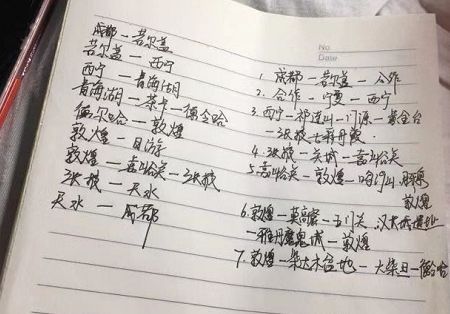 成都一若尔盖
若尔盖一西宁
西宁一青海湖
青海湖一茶卡一德令哈
德令哈一敦煌
敦煌一日游
敦煌一嘉峪关一张掖
张掖一天水
天水一成都
No
Date
1. 成都一若尔盖一合作
2. 合作一宁夏一西宁
3. 西宁一祁连山一门源一
一张掖七彩丹霞.
4. 张掖一关城一嘉峪关
5. 嘉峪关一敦煌一鸣沙山
敦煌
6. 敦煌一莫高窟一玉门关
一雅丹魔鬼城一敦煌
7. 敦煌一柴达木盆地一大柴旦一德令哈